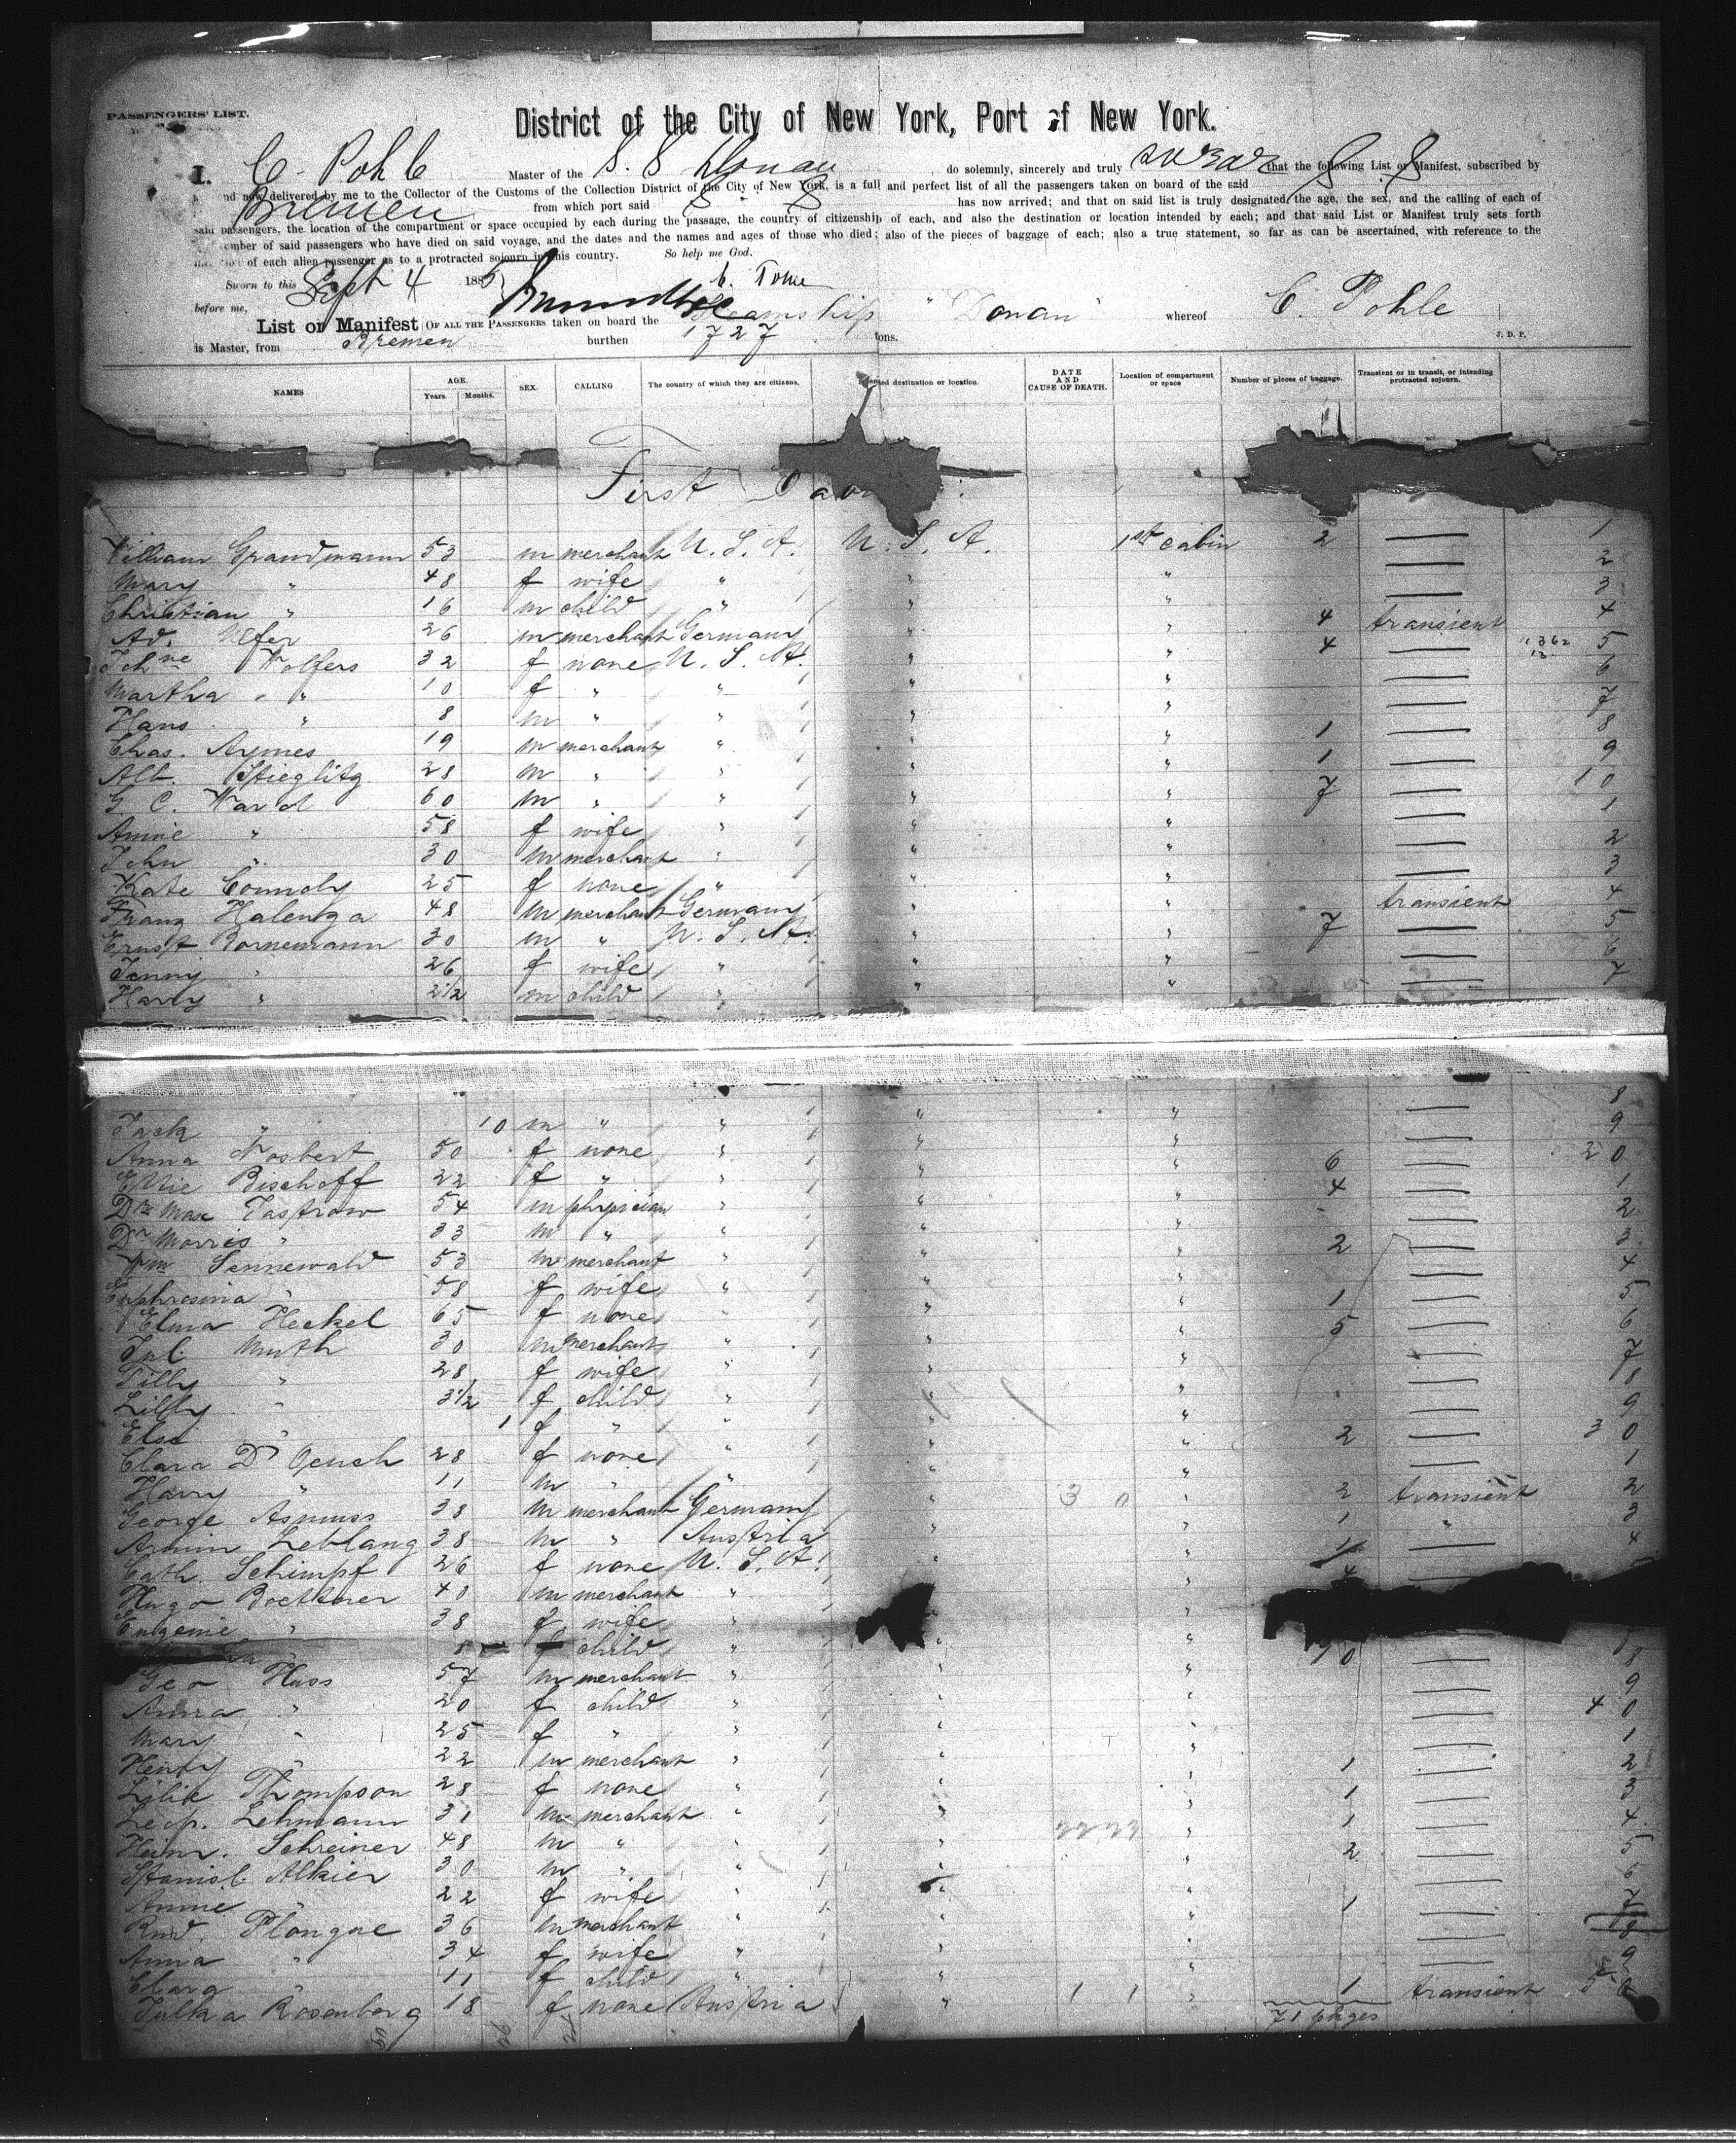 PASSENGERS' LIST.
District of the City of New York, Port of New York.
I, C. Pohle Master of the S. S. Donau do solemnly, sincerely and truly swear that the following List or Manifest, subscribed by
and now delivered by me to the Collector of the Customs of the Collection District of the City of New York, is a full and perfect list of all the passengers taken on board of the said S. S.
Bremen from which port said S. S. has now arrived; and that on said list is truly designated the age, the sex, and the calling of each of
said passengers, the location of the compartment or space occupied by each during the passage, the country of citizenship of each, and also the destination or location intended by each; and that said List or Manifest truly sets forth
number of said passengers who have died on said voyage, and the dates and the names and ages of those who died; also of the pieces of baggage of each; also a true statement, so far as can be ascertained, with reference to the
of each alien passenger as to a protracted sojourn in this country. So help me God.
Sworn to this Sept 4 1885
before me,
List or Manifest OF ALL THE PASSENGERS taken on board the Steamship "Donau" whereof C. Pohle
is Master, from Bremen burthen 1727 tons. J. D. P.
NAMES AGE. Years. Months. SEX. CALLING The country of which they are citizens. destination or location. DATE AND CAUSE OF DEATH. Location of compartment or space Number of pieces of baggage. Transient or in transit, or intending protracted sojourn.
First
William Grandmann 53 m merchant U. S. A. U. S. A. 1st cabin 2 — 1
Mary " 48 f wife " " " — 2
Christian " 16 m child " " " — 3
Ad. Ulfer 26 m merchant Germany " " 4 transient 4
Johne Wolfers 32 f none U. S. A. " " 4 — 5
Martha " 10 f " " " " — 6
Hans " 8 m " " " " — 7
Chas. Aymes 19 m merchant " " " 1 — 8
Alb. Stieglitz 28 m " " " " 1 — 9
G. C. Ward 60 m " " " " 7 — 10
Annie " 58 f wife " " " — 1
John " 30 m merchant " " " — 2
Kate Connoly 25 f none " " " — 3
Franz Halenga 48 m merchant Germany " " transient 4
Ernst Bornemann 30 m " U. S. A. " " 7 — 5
Jenny " 26 f wife " " " — 6
Harry " 2½ m child " " " — 7
Jack " 10 m " " " " — 8
Anna Nosbert 50 f none " " " — 9
Ettie Bischoff 22 f " " " " 6 — 20
Dr. Max Jastrow 54 m physician " " " 4 — 1
Dr Morris " 33 m " " " " - — 2
Wm Sennewald 53 m merchant " " " 2 — 3
Euphrosina " 58 f wife " " " — 4
Elma Heckel 65 f none " " " 1 — 5
Jul. Muth 30 m merchant " " " 5 — 6
Tilly " 28 f wife " " " — 7
Lilly " 3½ f child " " " — 8
Else " 1 f " " " " — 9
Clara D' Oench 28 f none " " " 2 — 30
Harry " 11 m " " " " — 1
George Asmuss 38 m merchant Germany " " 2 transient 2
Armin Leblang 38 m " Austria " " 1 " 3
Cath. Schimpf 26 f none U. S. A. " " 1 — 4
Hugo Boettner 40 m merchant " " 4 —
Eugenie " 38 f wife " " "
8 child " " "
Geo Huss 57 m merchant " " " 10 — 8
Anna " 20 f child " " " — 9
Mary " 25 f " " " " — 40
Henry " 22 m merchant " " " — 1
Lilie Thompson 28 f none " " " 1 — 2
Leop. Lehmann 31 m merchant " " " 1 — 3
Heinr. Schreiner 48 m " " " " 1 — 4
Stanisl. Alkier 30 m " " " " 2 — 5
Annie " 22 f wife " " " — 6
Rud. Plongue 36 m merchant " " " 1 — 7
Anna " 34 f wife " " " — 8
Clara " 11 f child " " " — 9
Julka Rosenberg 18 f none Austria " " 1 transient 50
71 pkges